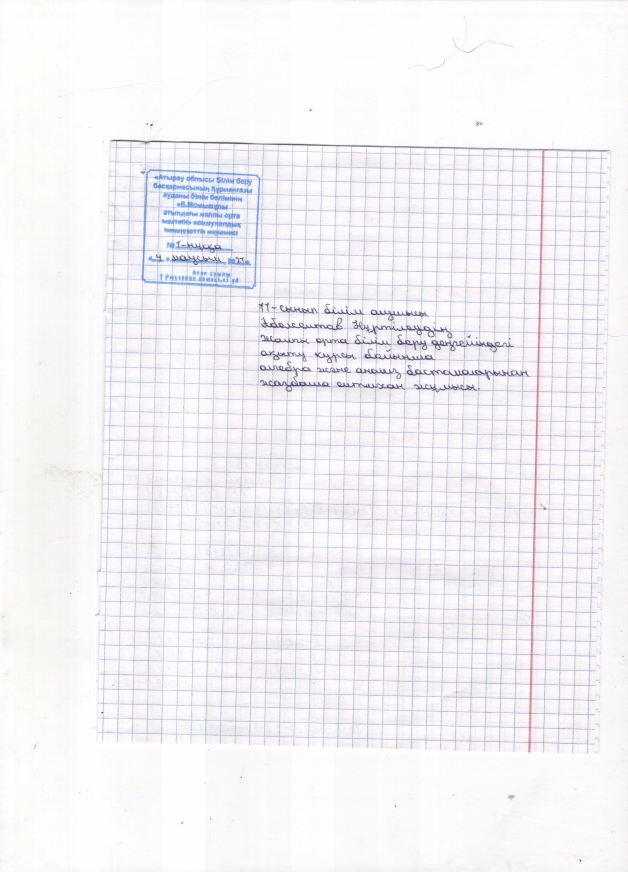 «Атырау облысы білім беру
басқармасының Құрманғазы
ауданы білім бөлімінің
атындағы жалпы орта
мектебі» коммуналдық
мемлекеттік мекемесі
№ 1-нұсқа
« 4 » маусым 20
11-сынып білім алушысы
Нұртілеудің
Жалпы орта білім беру деңгейіндегі
оқыту курсы бойынша
алгебра және анализ бастамаларынан
жазбаша емтихан жұмысы.